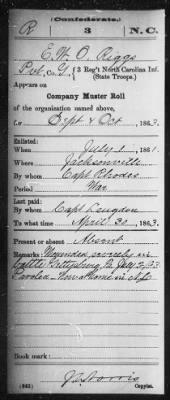 (Confederate.)
R 3 N.C.
E. W. O. Riggs
Pvt., Co. G, 3 Reg't North Carolina Inf.
(State Troops.)
Appears on
Company Muster Roll
of the organization named above,
for Sept & Oct, 1863.
Enlisted:
When July 1, 1861.
Where Jacksonville
By whom Capt Rhodes
Period War
Last paid:
By whom Capt Langdon
To what time April 30, 1863.
Present or absent Absent
Remarks: Wounded severely in
battle Gettysburg Pa July 3, 63
Paroled - Now at home in N.C.
Book mark:
(642) J. L. Norris
Copyist.